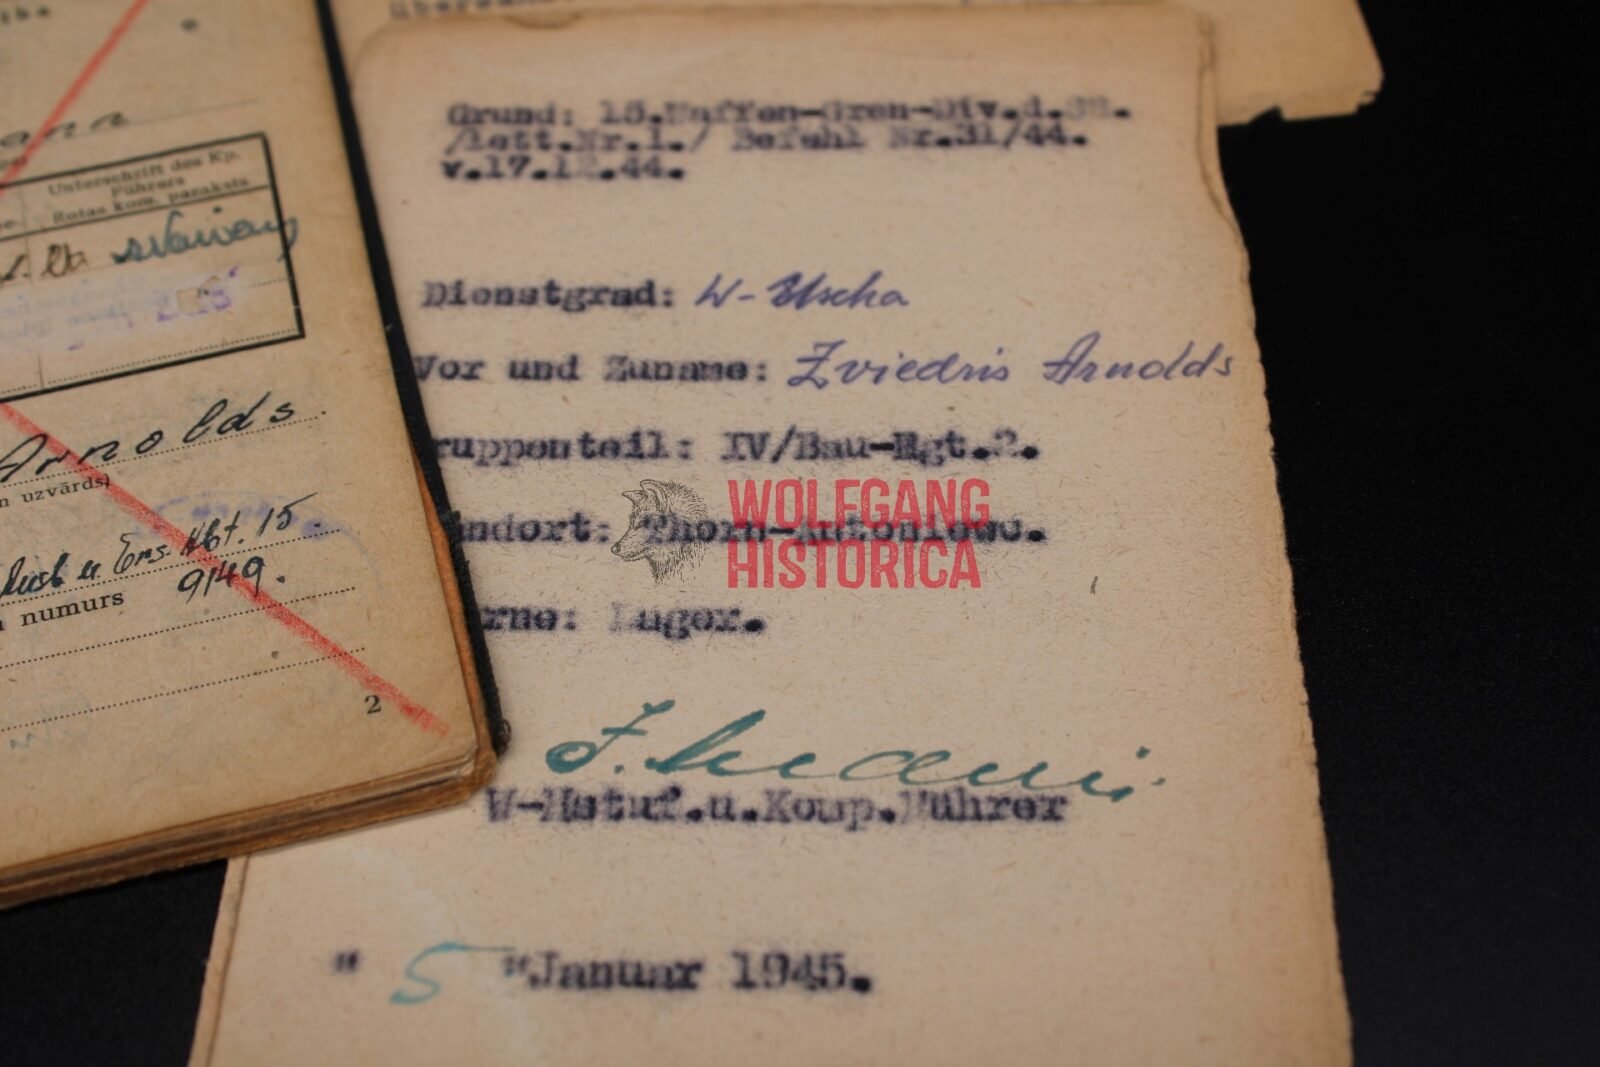 Unterschrift des Kp.
Führers
Rotas kom. paraksts
Arnolds
n uzvārds)
Ausb u Ers Abt. 15.
n numurs 9149.
2
Grund: 15.Waffen-Gren-Div.d.SS.
/lett.Nr.1./ Befehl Nr.31/44.
v.17.12.44.
Dienstgrad: W-Uscha
Vor und Zuname: Zviedris Arnolds
ruppenteil: IV/Bau-Rgt.2.
ndort: Thorn-Antoniewo.
rne: Lager.
WOLFGANG
HISTORICA
W-Hstuf.u.Komp.Führer
" 5 "Januar 1945.